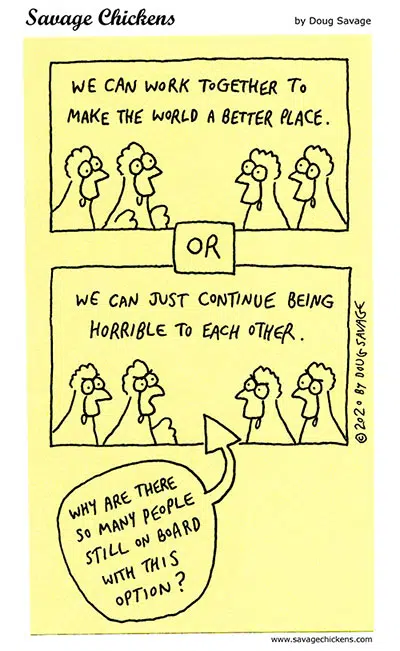 Savage Chickens
by Doug Savage
WE CAN WORK TOGETHER TO
MAKE THE WORLD A BETTER PLACE.
OR
WE CAN JUST CONTINUE BEING
HORRIBLE TO EACH OTHER.
© 2020 BY DOUG SAVAGE
WHY ARE THERE
SO MANY PEOPLE
STILL ON BOARD
WITH THIS
OPTION?
www.savagechickens.com